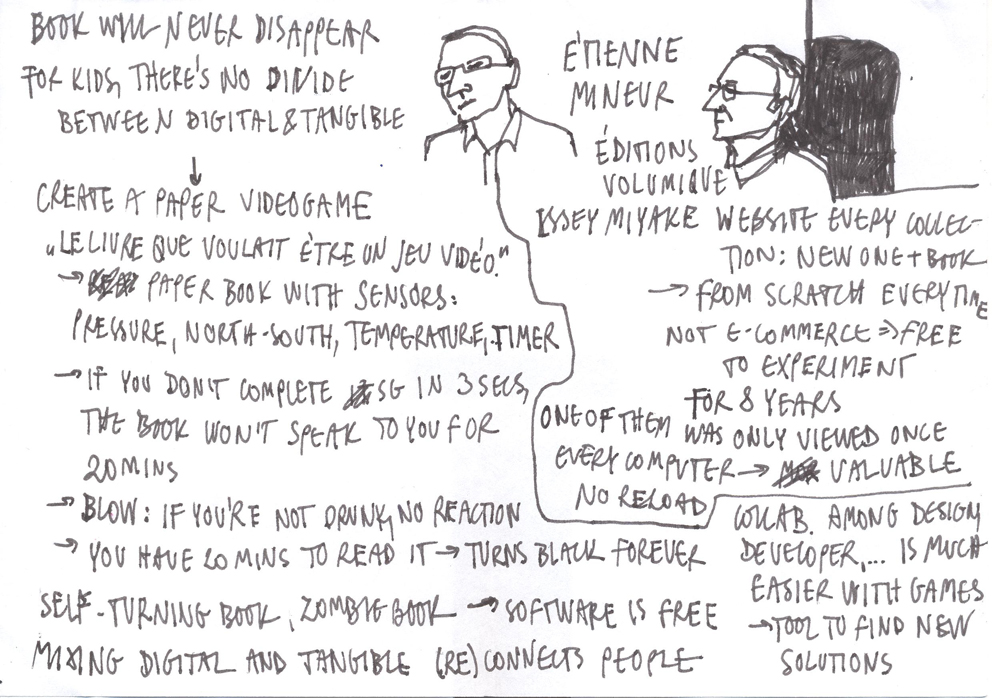 BOOK WILL NEVER DISAPPEAR
FOR KIDS, THERE'S NO DIVIDE
BETWEEN DIGITAL & TANGIBLE
↓
CREATE A PAPER VIDEOGAME
„LE LIVRE QUE VOULAIT ÊTRE UN JEU VIDÉO."
→ PAPER BOOK WITH SENSORS:
PRESSURE, NORTH-SOUTH, TEMPERATURE, TIMER
→ IF YOU DON'T COMPLETE SG IN 3 SECS,
THE BOOK WON'T SPEAK TO YOU FOR
20 MINS
→ BLOW: IF YOU'RE NOT DRUNK, NO REACTION
→ YOU HAVE 20 MINS TO READ IT → TURNS BLACK FOREVER
SELF-TURNING BOOK, ZOMBIE BOOK → SOFTWARE IS FREE
MIXING DIGITAL AND TANGIBLE (RE)CONNECTS PEOPLE
ÉTIENNE
MINEUR
ÉDITIONS
VOLUMIQUE
ISSEY MIYAKE WEBSITE EVERY COLLEC-
TION: NEW ONE + BOOK
→ FROM SCRATCH EVERYTIME
NOT E-COMMERCE ⇒ FREE
TO EXPERIMENT
FOR 8 YEARS
ONE OF THEM WAS ONLY VIEWED ONCE
EVERY COMPUTER → VALUABLE
NO RELOAD
COLLAB. AMONG DESIGN,
DEVELOPER,... IS MUCH
EASIER WITH GAMES
→ TOOL TO FIND NEW
SOLUTIONS